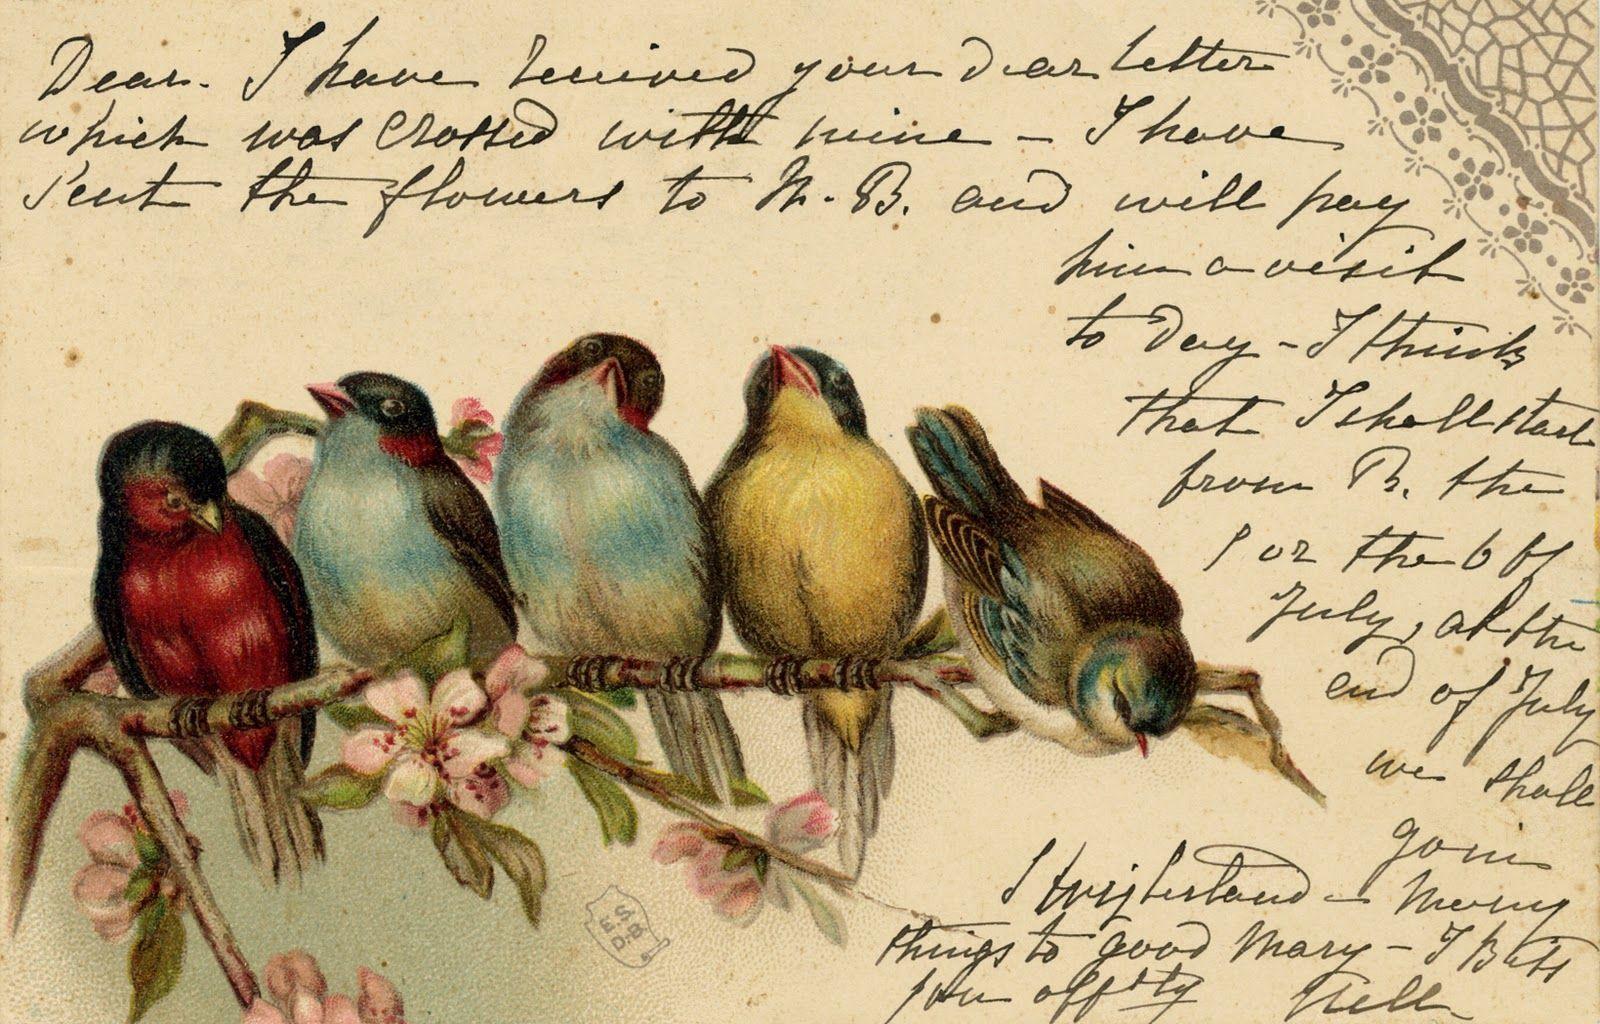 Dear. I have received your dear letter
which was crossed with mine – I have
sent the flowers to M. B. and will pay
him a visit
to day – I think
that I shall start
from B. the
or the 6 of
July, at the
end of July
we shall
join
many
things to good Mary – I
your
Nell